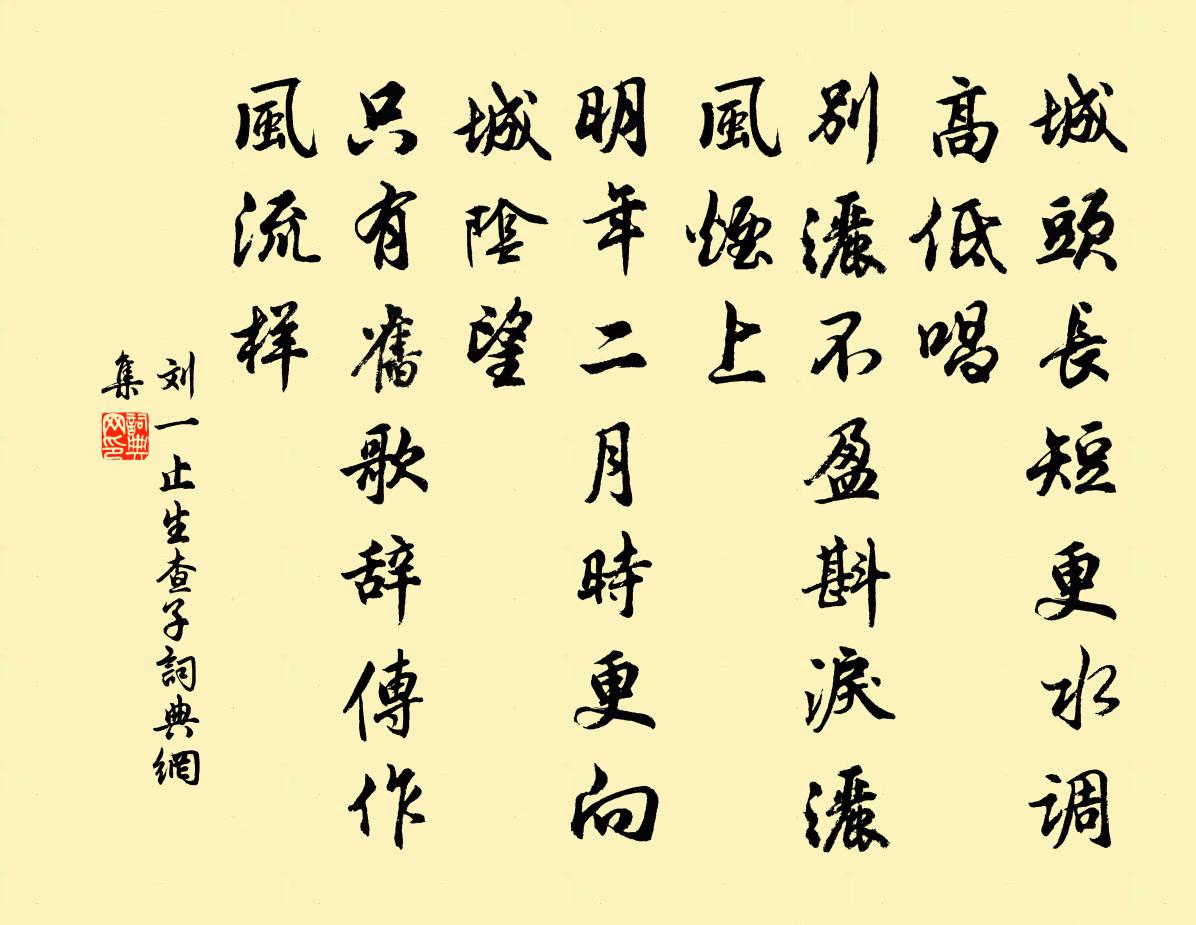 城頭長短更水调
高低唱
别灑不盈斟淚灑
風煙上
明年二月時更向
城陰望
只有舊歌辞傳作
風流样
刘一止生查子詞典網
集
詞典
网印